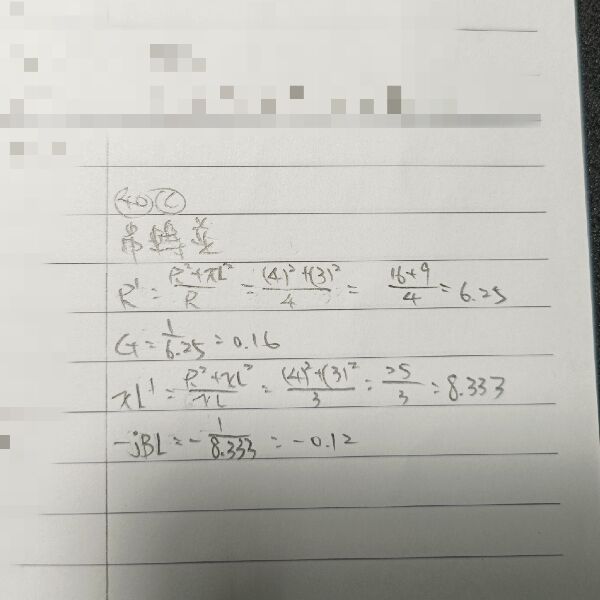 40 C
串轉並
R' = R²+XL²/R = (4)²+(3)²/4 = 16+9/4 = 6.25
G = 1/6.25 = 0.16
XL' = R²+XL²/XL = (4)²+(3)²/3 = 25/3 = 8.333
-jBL = - 1/8.333 = -0.12